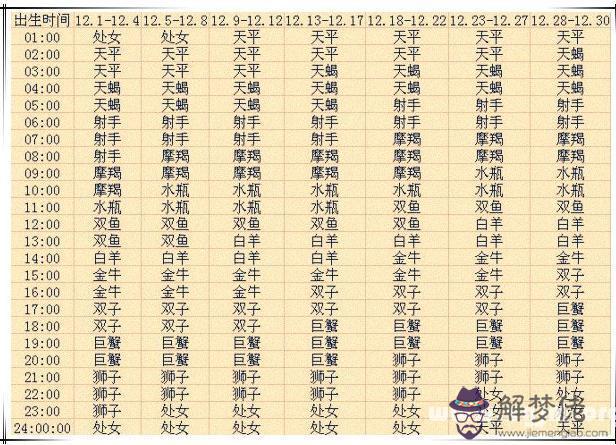 出生时间 12.1-12.4 12.5-12.8 12.9-12.12 12.13-12.17 12.18-12.22 12.23-12.27 12.28-12.30
01:00 处女 处女 天平 天平 天平 天平 天平
02:00 天平 天平 天平 天平 天平 天平 天蝎
03:00 天平 天平 天平 天蝎 天蝎 天蝎 天蝎
04:00 天蝎 天蝎 天蝎 天蝎 天蝎 天蝎 天蝎
05:00 天蝎 天蝎 天蝎 天蝎 射手 射手 射手
06:00 射手 射手 射手 射手 射手 射手 射手
07:00 射手 射手 射手 射手 摩羯 摩羯 摩羯
08:00 射手 摩羯 摩羯 摩羯 摩羯 摩羯 摩羯
09:00 摩羯 摩羯 摩羯 摩羯 摩羯 水瓶 水瓶
10:00 摩羯 水瓶 水瓶 水瓶 水瓶 水瓶 水瓶
11:00 水瓶 水瓶 水瓶 水瓶 双鱼 双鱼 双鱼
12:00 双鱼 双鱼 双鱼 双鱼 双鱼 白羊 白羊
13:00 双鱼 双鱼 白羊 白羊 白羊 白羊 白羊
14:00 白羊 白羊 白羊 白羊 金牛 金牛 金牛
15:00 金牛 金牛 金牛 金牛 金牛 金牛 双子
16:00 金牛 金牛 金牛 双子 双子 双子 双子
17:00 双子 双子 双子 双子 双子 双子 巨蟹
18:00 双子 双子 双子 巨蟹 巨蟹 巨蟹 巨蟹
19:00 巨蟹 巨蟹 巨蟹 巨蟹 巨蟹 巨蟹 巨蟹
20:00 巨蟹 巨蟹 巨蟹 巨蟹 狮子 狮子 狮子
21:00 狮子 狮子 狮子 狮子 狮子 狮子 狮子
22:00 狮子 狮子 狮子 狮子 狮子 处女 处女
23:00 狮子 处女 处女 处女 处女
24:00:00 处女 处女 处女 处女 处女 天平 天平
解梦佬
www.jiemenglao.com